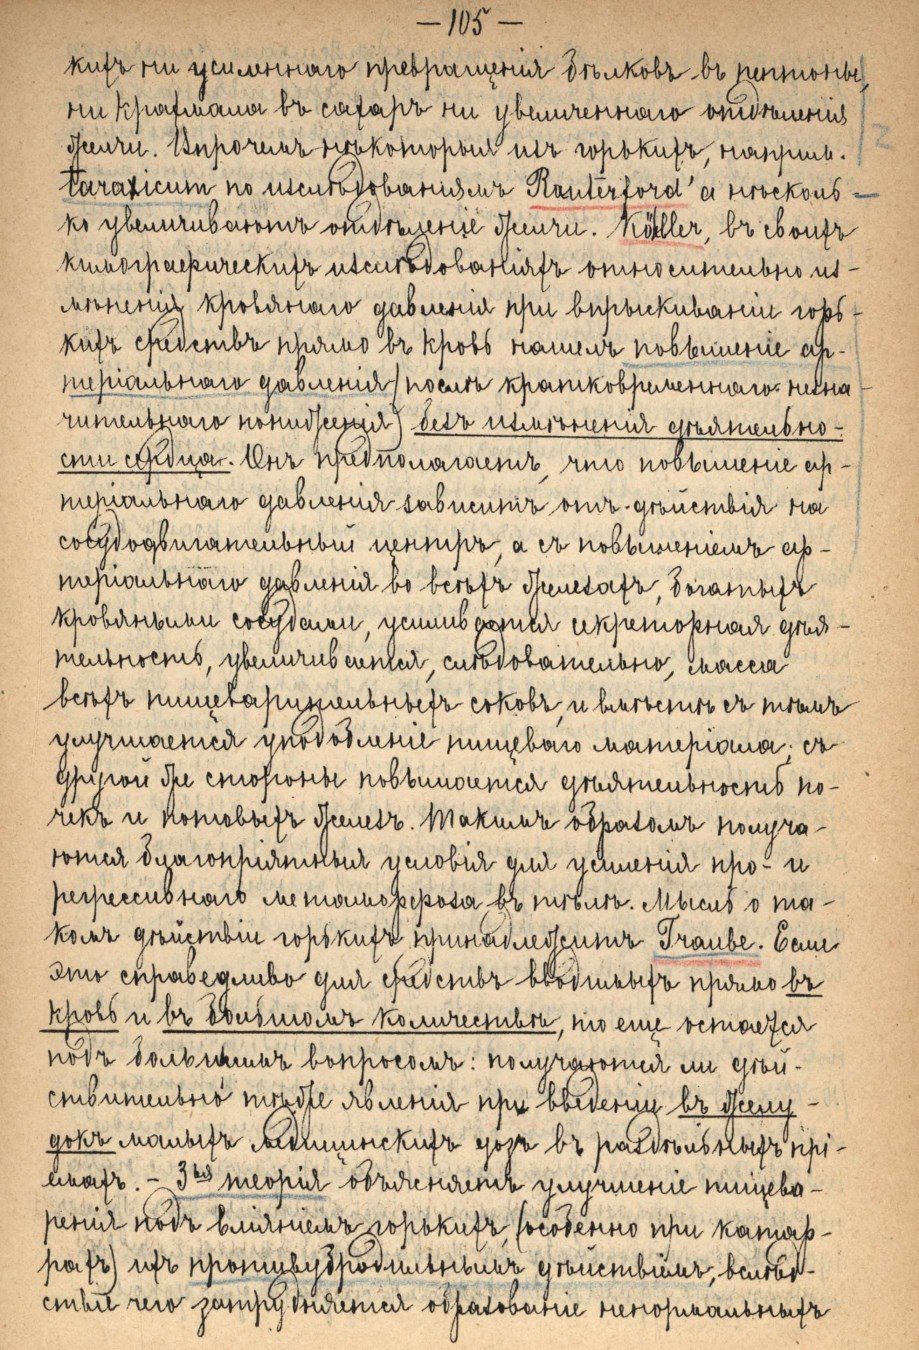 — 105 —
кихъ ни усиленнаго превращенія бѣлковъ въ пептоны,
ни крахмала въ сахаръ ни увеличеннаго отдѣленія
желчи. Впрочемъ нѣкоторыя изъ горькихъ, наприм.
taraxicum по изслѣдованіямъ Rauterford'а нѣсколь-
ко увеличиваютъ отдѣленіе желчи. Köller, въ своихъ
кимографическихъ изслѣдованіяхъ относительно из-
мѣненія кровяного давленія при впрыскиваніи горь-
кихъ средствъ прямо въ кровь нашелъ повышеніе ар-
теріальнаго давленія (послѣ кратковременнаго незна-
чительнаго пониженія) безъ измѣненія дѣятельно-
сти сердца. Онъ предполагаетъ, что повышеніе ар-
теріальнаго давленія зависитъ отъ дѣйствія на
сосудодвигательный центръ, а съ повышеніемъ ар-
теріальнаго давленія во всѣхъ железахъ, богатыхъ
кровяными сосудами, усиливается секреторная дѣя-
тельность, увеличивается, слѣдовательно, масса
всѣхъ пищеварительныхъ соковъ, и вмѣстѣ съ тѣмъ
улучшается уподобленіе пищеваго матеріала; съ
другой же стороны повышается дѣятельность по-
чекъ и потовыхъ железъ. Такимъ образомъ получа-
ются благопріятныя условія для усиленія про- и
регрессивнаго метаморфоза въ тѣлѣ. Мысль о та-
комъ дѣйствіи горькихъ принадлежитъ Traube. Если
это справедливо для средствъ вводимыхъ прямо въ
кровь и въ большомъ количествѣ, то еще остается
подъ большимъ вопросомъ: получаются ли дѣй-
ствительно тѣже явленія при введеніи въ желу-
докъ малыхъ медицинскихъ дозъ въ раздѣльныхъ прі-
емахъ. — 3ья теорія объясняетъ улучшеніе пищева-
ренія подъ вліяніемъ горькихъ, (особенно при катар-
рахъ) ихъ противубродильнымъ дѣйствіемъ, вслѣд-
ствіе чего затрудняется образованіе ненормальныхъ